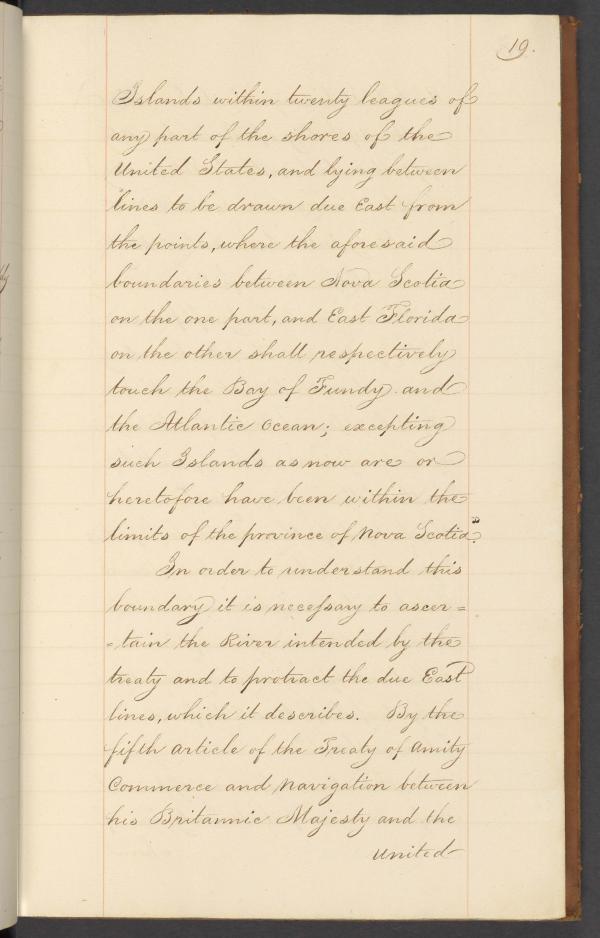 19.
Islands within twenty leagues of
any part of the shores of the
United States, and lying between
lines to be drawn due East from
the points, where the aforesaid
boundaries between Nova Scotia
on the one part, and East Florida
on the other shall respectively
touch the Bay of Fundy and
the Atlantic Ocean; excepting
such Islands as now are or
heretofore have been within the
limits of the province of Nova Scotia."
In order to understand this
boundary it is necessary to ascer=
=tain the River intended by the
treaty and to protract the due East
lines, which it describes. By the
fifth article of the Treaty of Amity
Commerce and Navigation between
his Britannic Majesty and the
United